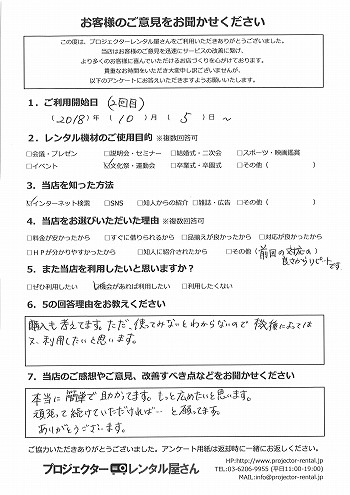 お客様のご意見をお聞かせください
この度は、プロジェクターレンタル屋さんをご利用いただきありがとうございました。
当店はお客様のご意見を迅速にサービスの改善に繋げ、
より多くのお客様に喜んでいただけるお店づくりを心がけております。
貴重なお時間をいただき大変申し訳ございませんが、
以下のアンケートにお答えいただきますようお願いいたします。
1. ご利用開始日 (2回目)
(2018)年(10)月(5)日~
2. レンタル機材のご使用目的 ※複数回答可
□会議・プレゼン □説明会・セミナー □結婚式・二次会 □スポーツ・映画鑑賞
□イベント ☑文化祭・運動会 □卒業式・卒園式 □その他( )
3. 当店を知った方法
☑インターネット検索 □SNS □知人からの紹介 □雑誌・広告 □その他( )
4. 当店をお選びいただいた理由 ※複数回答可
□料金が安かったから □すぐに借りられるから □品揃えが良かったから □対応が良かったから
□HPが分かりやすかったから □知人に紹介されたから □その他(前回の対応の
良さからリピートです
5. また当店を利用したいと思いますか？
□ぜひ利用したい ☑機会があれば利用したい □利用したくない
6. 5の回答理由をお教えください
購入も考えてます。ただ、使ってみないとわからないので
又、利用したいと思います。
7. 当店のご感想やご意見、改善すべき点などをお聞かせください
本当に簡単で助かってます。もっと広めたいと思います。
頑張って続けていただければ… と願ってます。
ありがとうございます。
ご協力いただきありがとうございました。アンケート用紙は返却時に一緒にお返しください。
プロジェクターレンタル屋さん
HP:http://www.projector-rental.jp
TEL:03-6206-9955 (平日11:00-19:00)
MAIL:info@projector-rental.jp